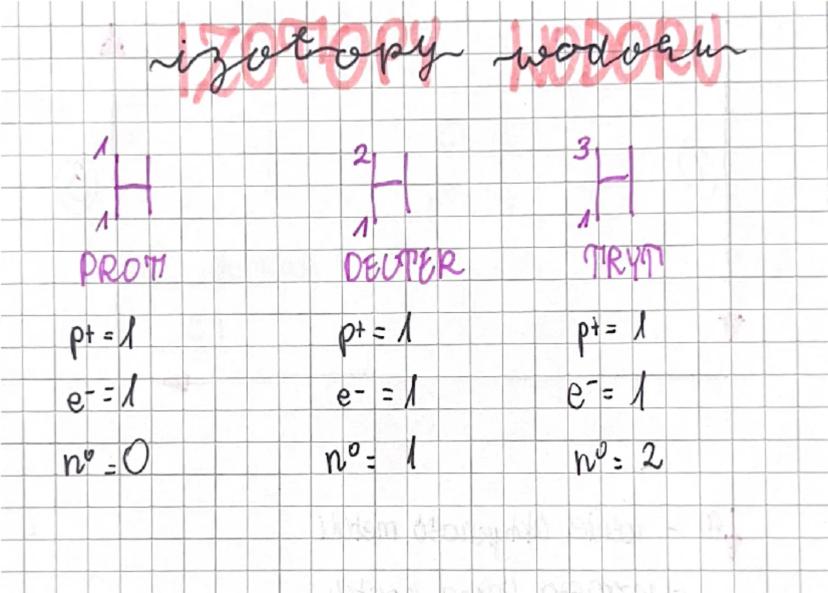 izotopy wodoru
IZOTOPY WODORU
1 1 H 2 1 H 3 1 H
PROT DEUTER TRYT
p+ = 1 p+ = 1 p+ = 1
e- = 1 e- = 1 e- = 1
n⁰ = 0 n⁰ = 1 n⁰ = 2